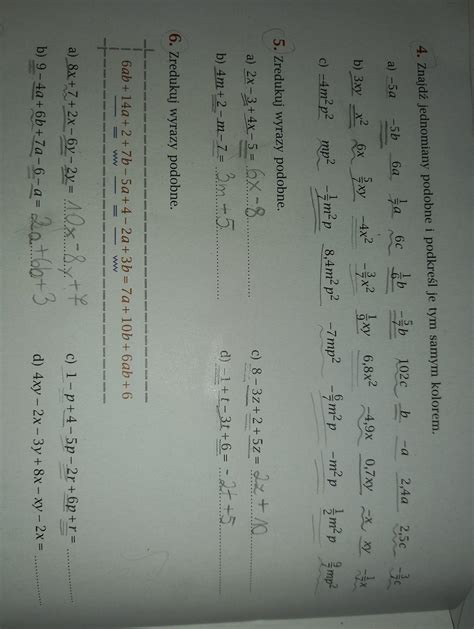 4. Znajdź jednomiany podobne i podkreśl je tym samym kolorem.
a) −5a −5b 6a ½a 6c ⅙b −5/7b 102c b −a 2,4a 2,5c −¾c
b) 3xy x² 6x 5/7xy −4x² −3/7x² 1/9xy 6,8x² −4,9x 0,7xy −x xy −½x
c) −4m²p² mp² −1/7m²p² 8,4m²p² −7mp² −6/7m²p −m²p ½m²p 9/4mp²
5. Zredukuj wyrazy podobne.
a) 2x − 3 + 4x − 5 = 6x − 8
c) 8 − 3z + 2 + 5z = 2z + 10
b) 4m + 2 − m − 7 = 3m + 5
d) −1 + t − 3t + 6 = − 2t + 5
6. Zredukuj wyrazy podobne.
6ab + 14a + 2 + 7b − 5a + 4 − 2a + 3b = 7a + 10b + 6ab + 6
a) 8x + 7 + 2x − 6y − 2y = 10x − 8y + 7
c) 1 − p + 4 − 5p − 2r + 6p + r =
b) 9 − 4a + 6b + 7a − 6 − a = 2a + 6b + 3
d) 4xy − 2x − 3y + 8x − xy − 2x =